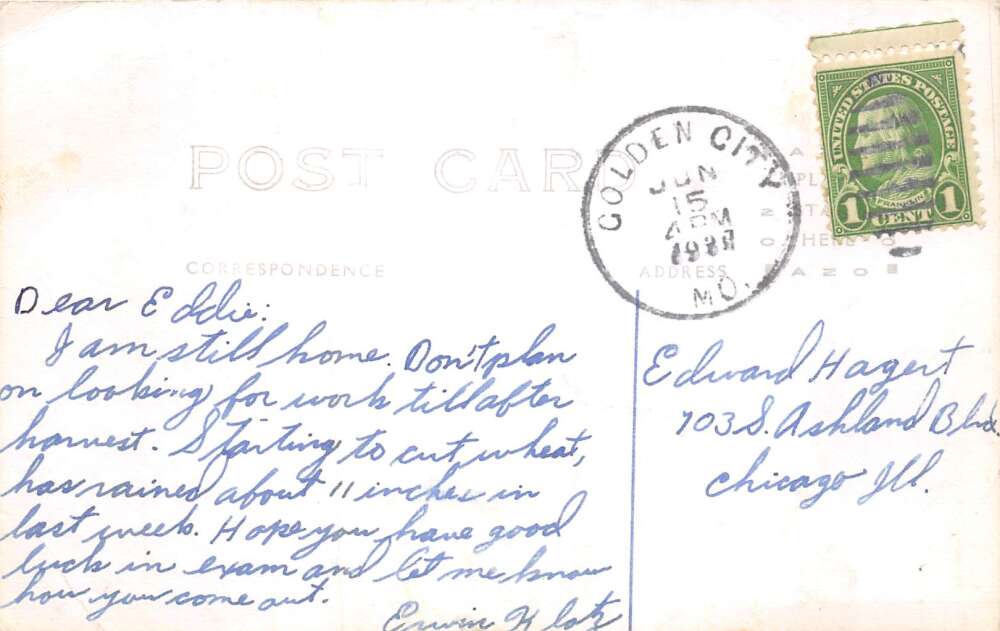 UNITED STATES POSTAGE
FRANKLIN
1 CENT 1
POST CARD
GOLDEN CITY
JUN
15
4 PM
MO.
CORRESPONDENCE
ADDRESS
PL
STA
HERE
AZO
Dear Eddie:
I am still home. Don't plan
on looking for work till after
harvest. Starting to cut wheat,
has rained about 11 inches in
last week. Hope you have good
luck in exam and let me know
how you come out.
Erwin Klotz
Edward Hagert
703 S. Ashland Blvd.
Chicago Ill.